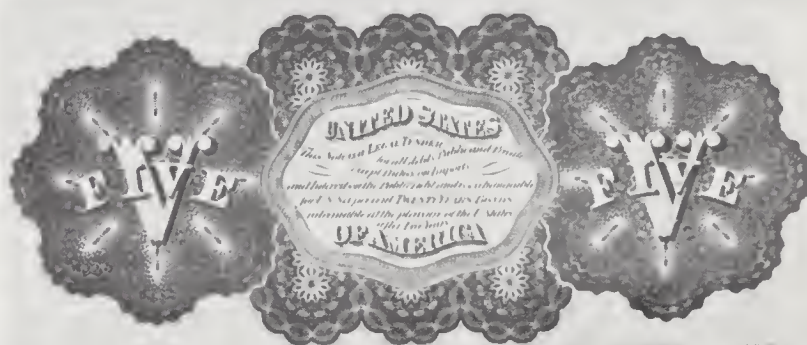 UNITED STATES
This Note is a LEGAL TENDER
for all debts Public and Private
except Duties on Imports
and Interest on the Public Debt and is exchangeable
for U.S. Six per cent TWENTY YEARS BONDS
redeemable at the pleasure of the U. States
after Five Years
OF AMERICA
FIVE
FIVE